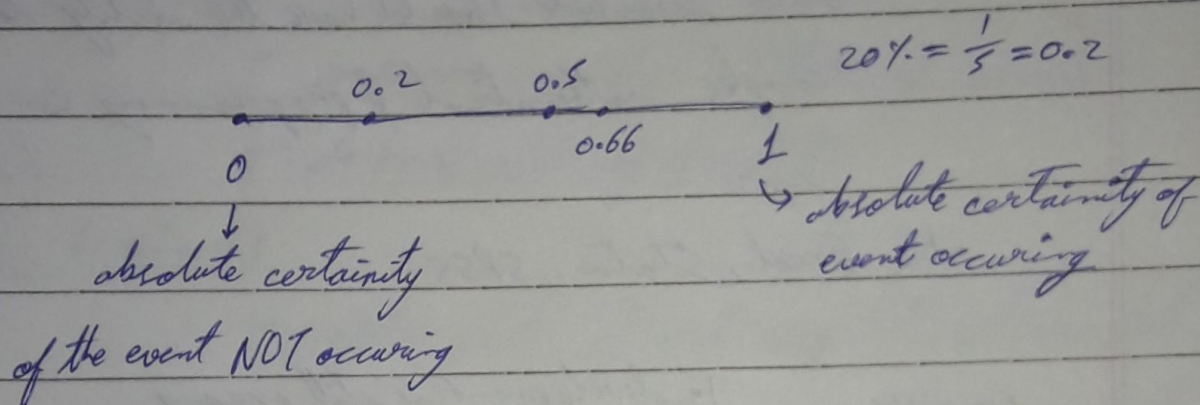 20% = 1/5 = 0.2
0.2 0.5
0.66
0 1
absolute certainity of
event occuring
absolute certainity
of the event NOT occuring